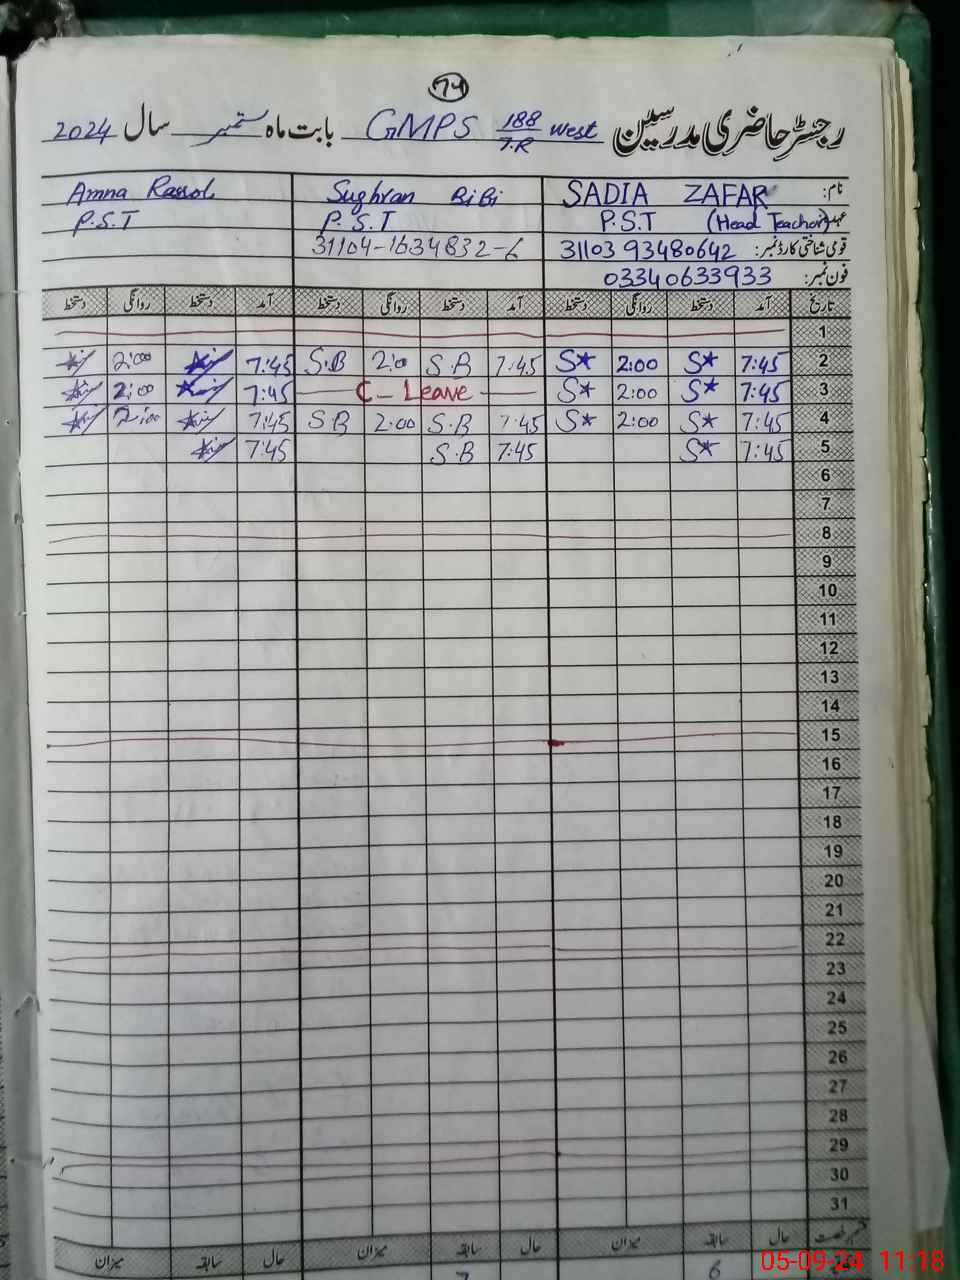 74
رجسٹر حاضری مدرسین GMPS 188/7.R West بابت ماہ ستمبر سال 2024
نام: SADIA ZAFAR Sughran BiBi Amna Rasool
عہدہ P.S.T (Head Teacher) P.S.T P.S.T
قومی شناختی کارڈ نمبر: 31103 93480642 31104-1634832-6
فون نمبر: 03340633933
تاریخ آمد دستخط روانگی دستخط آمد دستخط روانگی دستخط آمد دستخط روانگی دستخط
1
2 7:45 S* 2:00 S* 7:45 S.B 2:0 S.B 7:45 2:00
3 7:45 S* 2:00 S* C - Leave 7:45 2:00
4 7:45 S* 2:00 S* 7:45 S.B 2:00 S.B 7:45 2:00
5 7:45 S* 7:45 S.B 7:45
6
7
8
9
10
11
12
13
14
15
16
17
18
19
20
21
22
23
24
25
26
27
28
29
30
31
حال سابقہ میزان حال سابقہ میزان حال سابقہ میزان
6
05-09-24 11:18